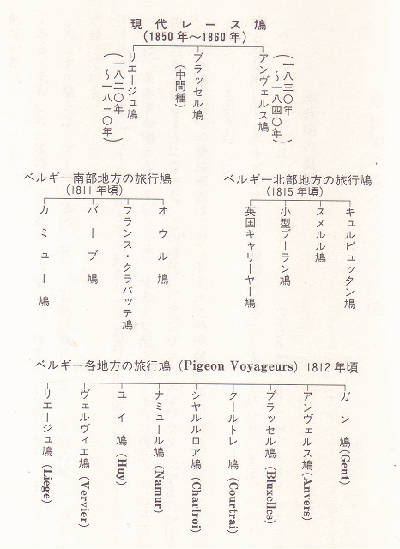 現代レース鳩
(1850年〜1860年)
(一八三〇年〜一八四〇年)
アンヴェルス鳩
ブラッセル鳩
(中間種)
リエージュ鳩
(一八二〇年〜一八一〇年)
ベルギー北部地方の旅行鳩
(1815年頃)
キュルビュッタン鳩
スメルル鳩
小型プーラン鳩
英国キャリーヤー鳩
ベルギー南部地方の旅行鳩
(1811年頃)
オウル鳩
フランス・クラバッテ鳩
バーブ鳩
カミュー鳩
ベルギー各地方の旅行鳩 (Pigeon Voyageurs) 1812年頃
ガン鳩 (Gent)
アンヴェルス鳩 (Anvers)
ブラッセル鳩 (Bluxelles)
クールトレ鳩 (Courtrai)
シャルルロア鳩 (Charlroi)
ナミュール鳩 (Namur)
ユイ鳩 (Huy)
ヴェルヴィエ鳩 (Vervier)
リエージュ鳩 (Liege)